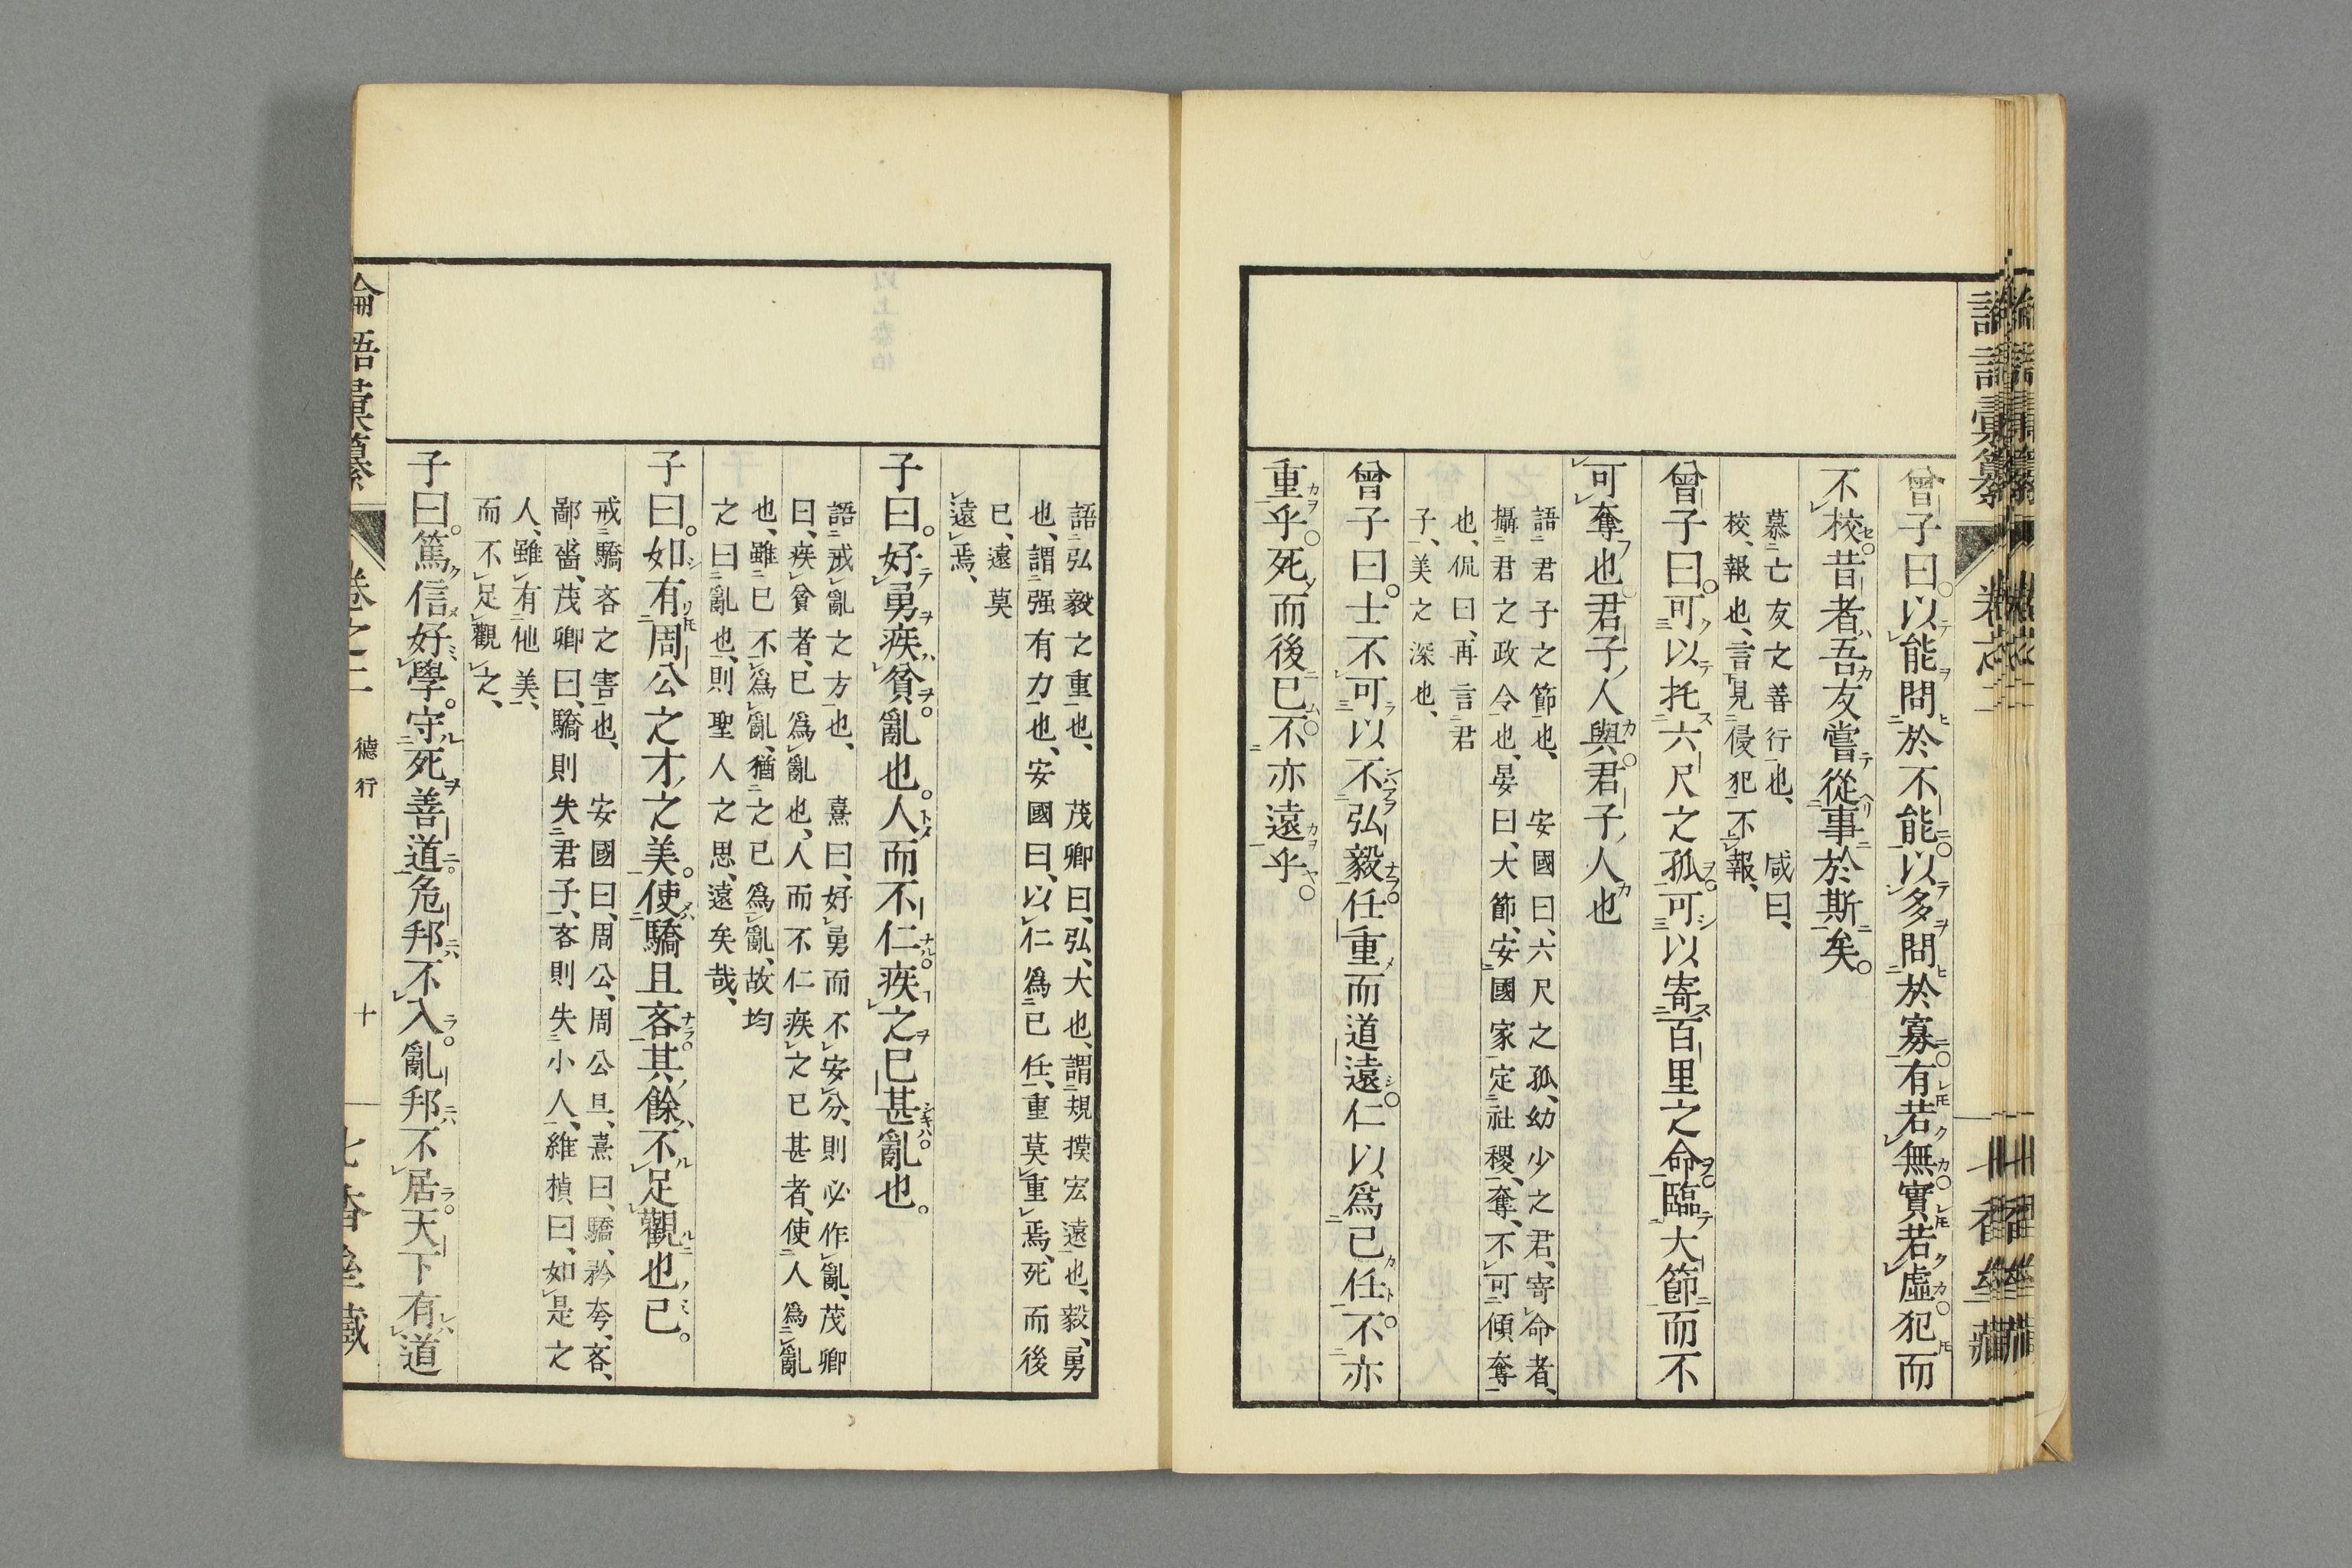 曾子曰。以能問於不能。以多問於寡。有若無。實若虛。犯而
不校。昔者吾友嘗從事於斯矣。
慕亡友之善行也、 咸曰、
校、報也、言見侵犯不報、
曾子曰。可以托六尺之孤。可以寄百里之命。臨大節而不
可奪也。君子人與。君子人也
語君子之節也、 安國曰、六尺之孤、幼少之君、寄命者、
攝君之政令也、晏曰、大節、安國家定社稷、奪、不可傾奪
也、侃曰、再言君
子、美之深也、
曾子曰。士不可以不弘毅。任重而道遠。仁以爲已任。不亦
重乎。死而後已。不亦遠乎。
語弘毅之重也、 茂卿曰、弘、大也、謂規摸宏遠也、毅、勇
也、謂强有力也、安國曰、以仁爲已任、重莫重焉、死而後
已、遠莫
遠焉、
子曰。好勇疾貧。亂也。人而不仁。疾之已甚。亂也。
語戒亂之方也、 熹曰、好勇而不安分、則必作亂、茂卿
曰、疾貧者、已爲亂也、人而不仁疾之已甚者、使人爲亂
也、雖已不爲亂、猶之已爲亂、故均
之曰亂也、則聖人之思、遠矣哉、
子曰。如有周公之才之美。使驕且吝。其餘不足觀也已。
戒驕吝之害也、 安國曰、周公、周公旦、熹曰、驕、矜夸、吝、
鄙嗇、茂卿曰、驕則失君子、吝則失小人、維楨曰、如是之
人、雖有他美、
而不足觀之、
子曰。篤信好學。守死善道。危邦不入。亂邦不居。天下有道
論語彙纂
卷之二 德行
十